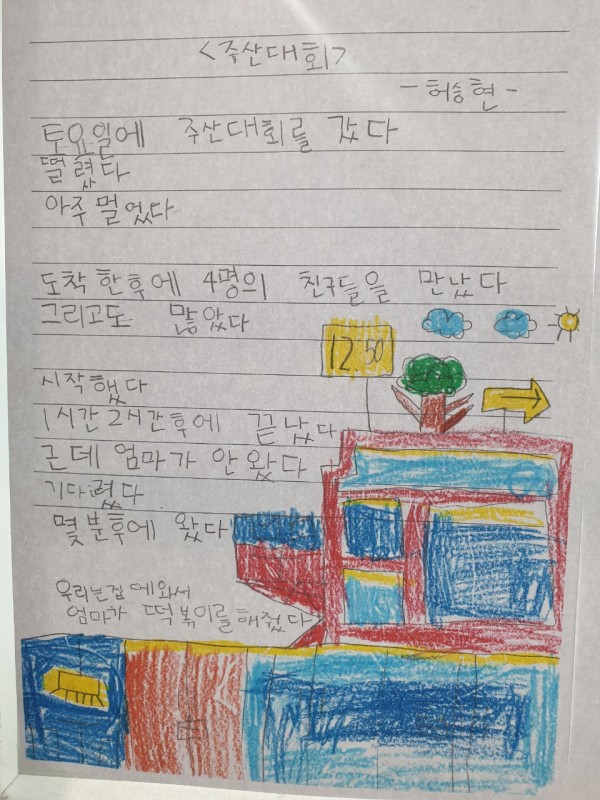 <주산대회>
- 허승현 -
토요일에 주산대회를 갔다
떨렸다
아주 멀었다
도착한후에 4명의 친구들을 만났다
그리고도 많았다
12:50
시작했다
1시간2시간후에 끝났다
근데 엄마가 안왔다
기다렸다
몇분후에 왔다
우리는집에와서
엄마가 떡볶이를해줬다